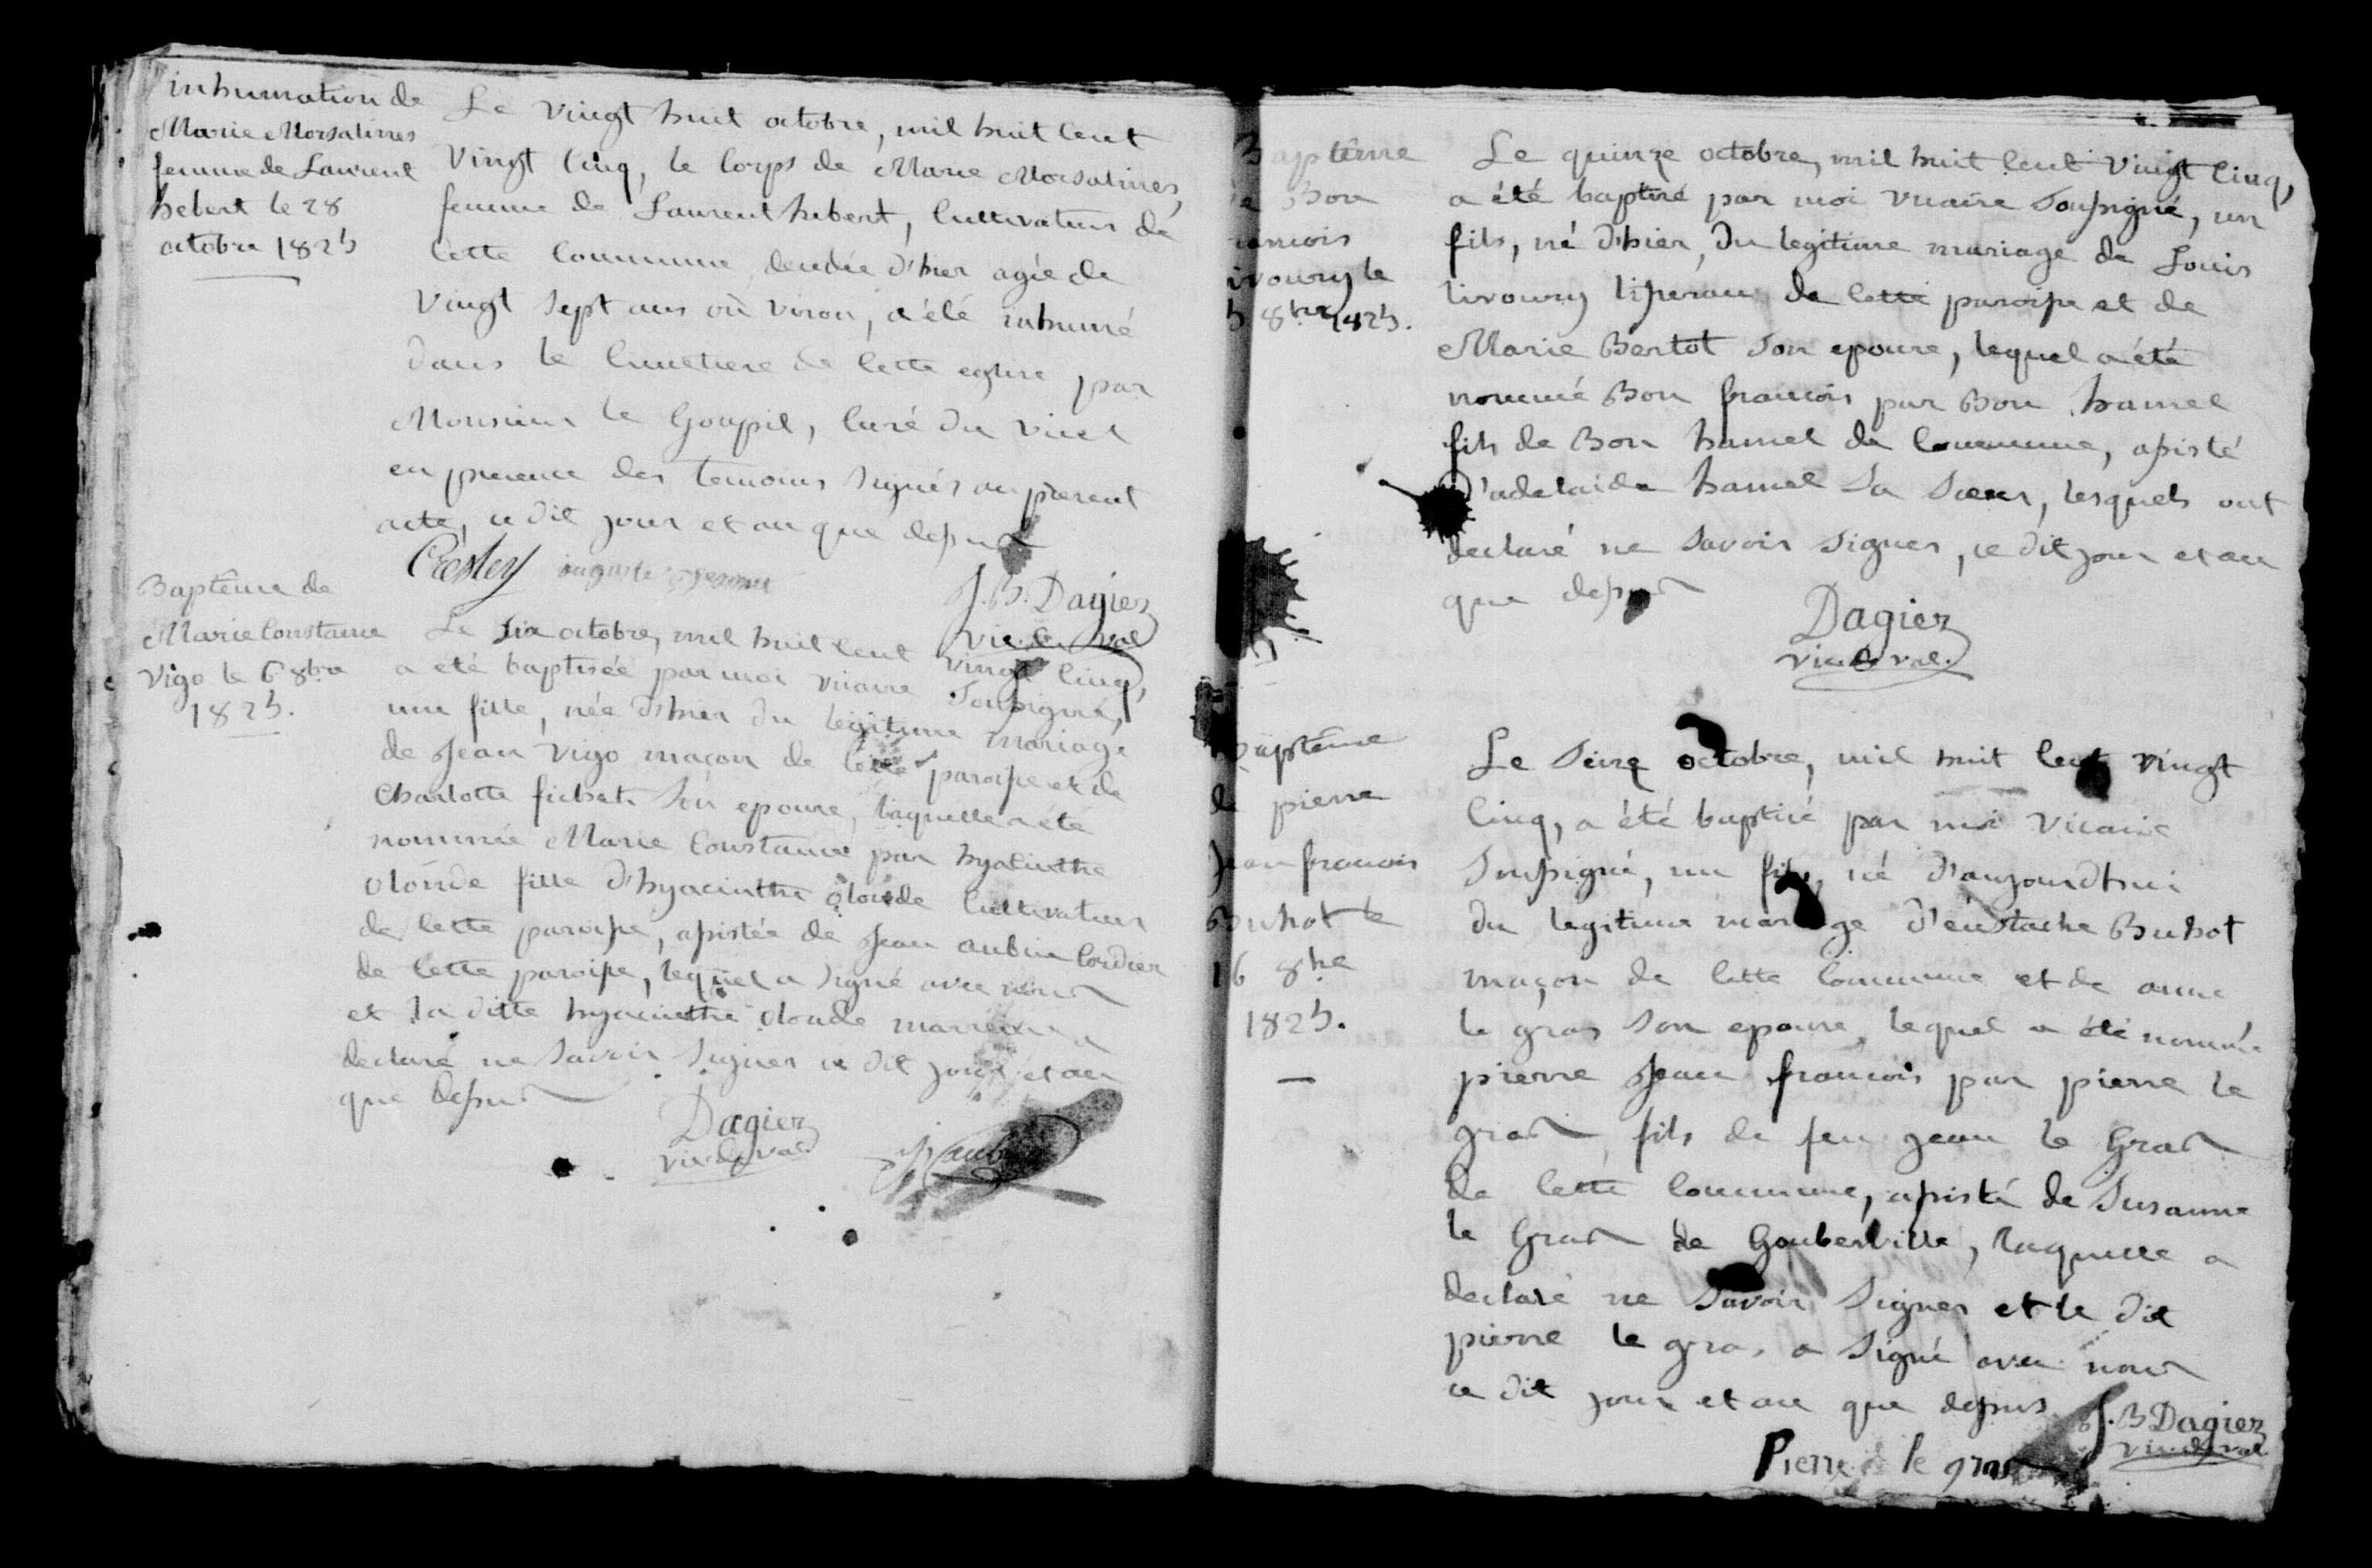 inhumation de
Marie Morsalines
femme de Laurent
hebert le 28
octobre 1825
Le vingt huit octobre, mil huit cent
vingt cinq, le corps de Marie Morsalines,
femme de Laurent hebert, cultivateur de
cette commune, decedée d'hier agée de
vingt sept ans où viron, a été inhumé
dans le cimetiere de cette eglise par
Monsieur le Goupil, curé du vicel
en presence des temoins signés au present
acte, ce dit jour et an que dessus
J.B. Dagier
vic. du val
Baptême de
Marie Constance
Vigo le 6 8bre
1825.
Le six octobre, mil huit cent vingt cinq,
a été baptisée par moi vicaire soussigné,
une fille, née d'hier du legitime mariage
de Jean Vigo maçon de cette paroisse et de
Charlotte fichet son epouse, laquelle a été
nommée Marie Constance par hyacinthe
olonde fille d'hyacinthe olonde cultivateur
de cette paroisse, assistée de Jean aubin Cordier
de cette paroisse, lequel a signé avec nous
et la ditte hyacinthe olonde marreine a
declaré ne savoir signer ce dit jour et an
que dessus
Dagier
vic. du val.
Baptême
de Bon
francois
livoury le
15 8bre 1825.
Le quinze octobre, mil huit cent vingt cinq,
a été baptisé par moi vicaire soussigné, un
fils, né d'hier, du legitime mariage de Louis
livoury tisseran de cette paroisse et de
Marie Bertot son epouse, lequel a été
nommé Bon francois par Bon hamel
fils de Bon hamel de commune, assisté
D'adelaide hamel sa soeur, lesquels ont
declaré ne savoir signer, ce dit jour et an
que dessus
Dagier
vic. du val.
Baptême
de pierre
Jean francois
Buhot le
16 8bre
1825.
Le seize octobre, mil huit cent vingt
cinq, a été baptisé par moi vicaire
soussigné, un fils, né d'aujourdhui
du legitime mariage d'eustache Buhot
maçon de cette commune et de anne
le gras son epouse, lequel a été nommé
pierre Jean francois par pierre le
gras fils de feu jean le Gras
de cette commune, assisté de Susanne
le Gras de Gouberville, laquelle a
declaré ne savoir signer et le dit
pierre le gras a signé avec nous
ce dit jour et an que dessus
J.B Dagier
vic. du val
Pierre le gras